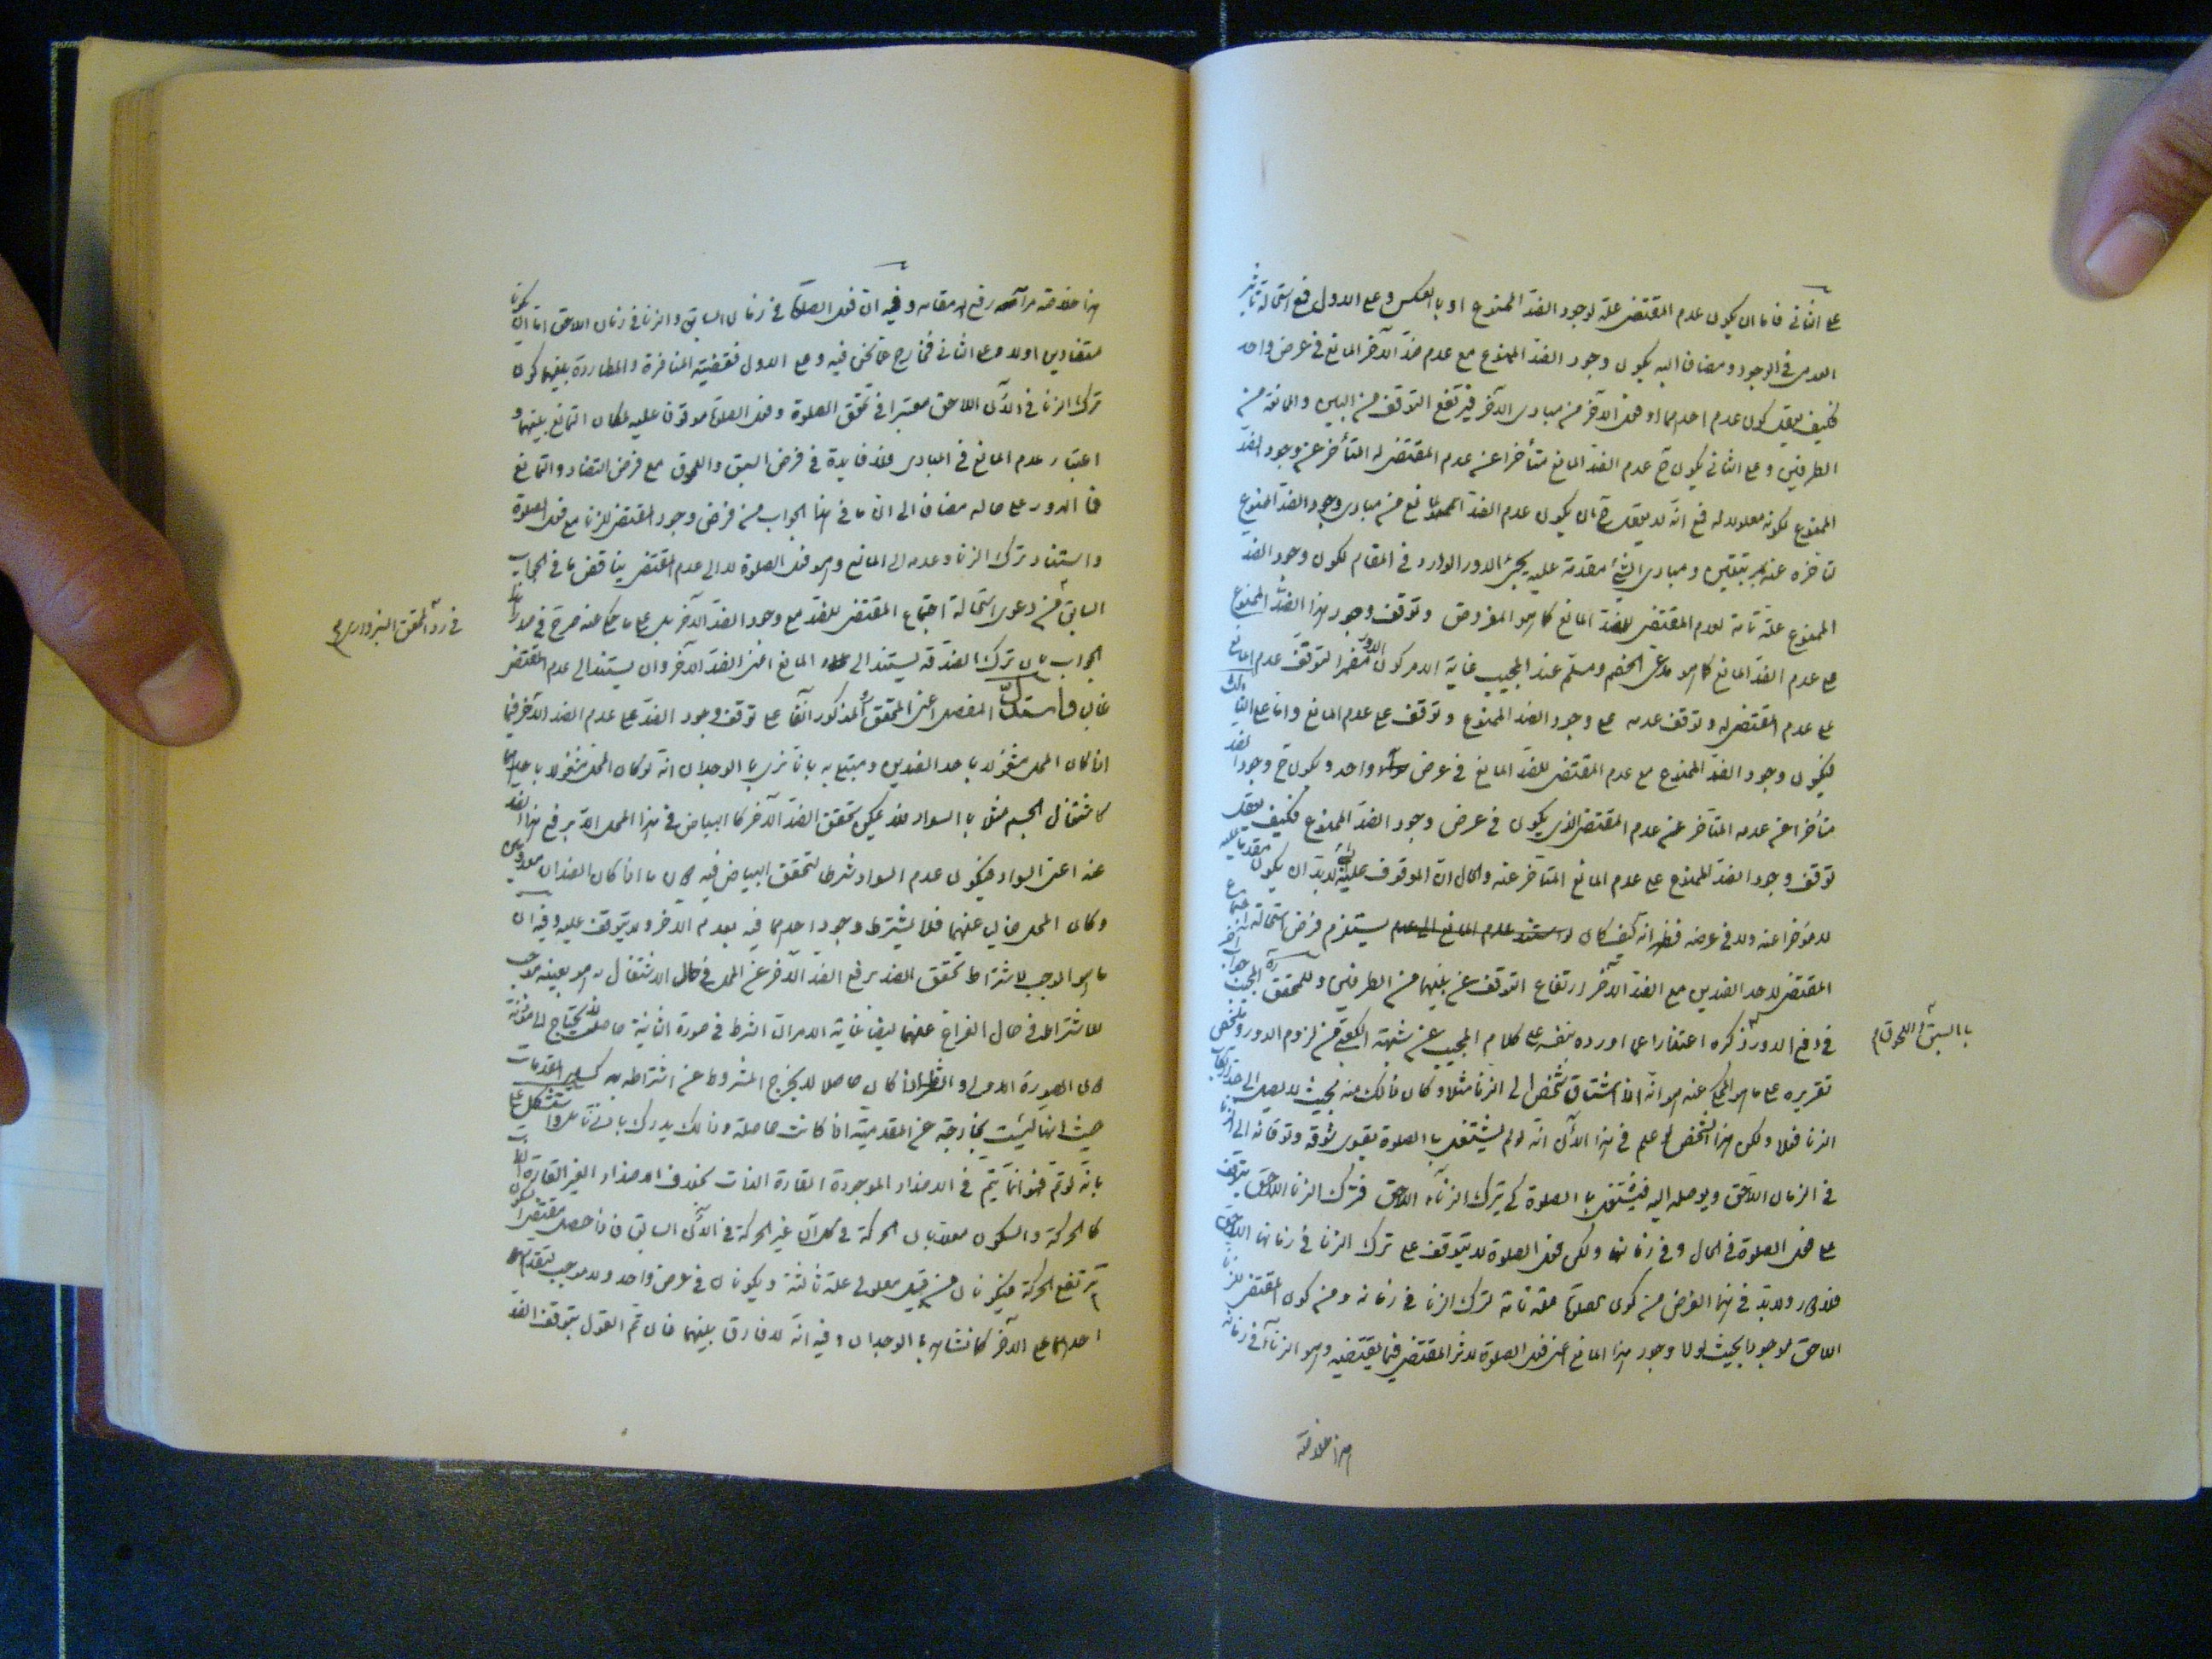 على الثاني فاما ان يكون عدم المقتضى علة لوجود الضدّ الممنوع او بالعكس وعلى الاول فمع استحالة تاثير
العدم في الوجود ومضافا اليه يكون وجود الضدّ الممنوع مع عدم ضدّ الآخر المانع في عرض واحد
فكيف يعقل كون عدم احدهما او فعل الآخر من مبادى الآخر فيرتفع التوقف من البين والمانعة من
الطرفين وعلى الثاني يكون ح عدم الضدّ المانع متأخرا عن عدم المقتضى له المتأخر عن وجود الضدّ
الممنوع لكونه معلولا له فمع انّه لا يعقل ح ان يكون عدم الضدّ المانع من مبادى وجود الضدّ الممنوع
لتاخره عنه بمرتبتين ومبادى الشئ مقدمة عليه يجئ الدور الوارد في المقام لكون وجود الضدّ
الممنوع علّة تامة لعدم المقتضى للضدّ المانع كما هو المفروض وتوقف وجود هذا الضدّ الممنوع
على عدم الضدّ المانع كما هو مدعى الخصم ومسلّم عند المجيب غاية الامر كون الدور مضمرا لتوقف عدم المانع
على عدم المقتضى له وتوقف عدمه على وجود الضدّ الممنوع وتوقفه على عدم المانع واما على الثالث
فيكون وجود الضدّ الممنوع مع عدم المقتضى للضدّ المانع في عرض واحد ويكون ح وجود الضد
متأخرا عن عدمه المتأخر عن عدم المقتضى الذى يكون في عرض وجود الضدّ الممنوع فكيف يعقل
توقف وجود الضدّ الممنوع على عدم المانع المتأخر عنه والحال انّ الموقوف عليه لابدّ ان يكون مقدما عليه
لا مؤخرا عنه ولا في عرضه فظهر انه كيف كان يستلزم فرض استحالة اجتماع
المقتضى لاحد الضدين مع الضدّ الآخر ارتفاع التوقف عن بينهما من الطرفين وللمحقق المجيب جواب آخر
في دفع الدور ذكره اعتذارا عما اورده بنفسه على كلام المجيب عن شبهة الكعبى من لزوم الدور وملخص
بالسبق واللحوق م
تقريره على ما هو المحكى عنه هو انّه اذا اشتاق شخص الى الزنا مثلا وكان ذلك منه بحيث لا يصل الى حدّ ارتكاب
الزنا فعلا ولكن هذا الشخص لو علم في هذا الآن انّه لو لم يشتغل بالصلوة يقوى شوقه وتوقانه الى الزنا
في الزمان اللاحق ويوصله اليه فيشتغل بالصلوة كى يترك الزناء اللاحق فترك الزنا اللاحق يتوقف
على فعل الصلوة في الحال وفي زمانها ولكن فعل الصلوة لا يتوقف على ترك الزنا في زمانها اللاحق
فلا دور ولابدّ في هذا الفرض من كون الصلوة علّة تامة لترك الزنا في زمانه ومن كون المقتضى للزنا
اللاحق موجودا بحيث لولا وجود هذا المانع اعنى فعل الصلوة لاثر المقتضى فيما يقتضيه وهو الزناء في زمانه
هذا خلاصة
هذا خلاصة مرامه رفع الله مقامه وفيه ان فعل الصلوة في زمان السابق والزنا في زمان اللاحق اما ان يكونا
متضادين اولا وعلى الثاني فخارج عما نحن فيه وعلى الاول فقضية المنافرة والمطاردة بينهما كون
ترك الزنا في الآن اللاحق معتبرا في تحقق الصلوة وفعل الصلوة موقوفا عليه لمكان التمانع بينهما و
اعتبار عدم المانع في المبادى فلا فايدة في فرض السبق واللحوق مع فرض التضاد والتمانع
فالدور على حاله مضافا الى ان ما في هذا الجواب من فرض وجود المقتضى للزنا مع فعل الصلوة
واستناد ترك الزنا وعدمه الى المانع وهو فعل الصلوة لا الى عدم المقتضى يناقض ما في الجواب
السابق من دعوى استحالة اجتماع المقتضى للضدّ مع وجود الضدّ الآخر بل على ما حكى عنه صرح في
في ردّ المحقق السبزوارى
الجواب بان ترك الضدّ قد يستند الى المانع اعنى الضدّ الآخر وان يستند الى عدم المقتضى
غالبا واستدلّ المفصل اعنى المحقق المذكور آنفا على توقف وجود الضدّ على عدم الضد الآخر فيما
اذا كان المحل مشغولا باحد الضدين ومتبع به بانا نرى بالوجدان انه لو كان المحل مشغولا باحدهما
كاشتغال الجسم مثلا بالسواد فلا يمكن تحقق الضدّ الآخر كالبياض في هذا المحل الا برفع هذا الضد
عنه اعنى السواد فيكون عدم السواد شرطا لتحقق البياض فيه واما اذا كان الضدان معدومين
وكان المحل خاليا عنهما فلا يشترط وجود احدهما فيه بعدم الاخر ولا يتوقف عليه وفيه ان
ما هو الموجب لاشتراط تحقق الضد برفع الضدّ الآخر عن المحل في حال الاشتغال به هو بعينه موجب
للاشتراط في حال الفراغ عنهما ايضا غاية الامر ان الشرط في صورة الثانية حاصل فلا يحتاج الى مؤنة
كالصورة الاولى والشرط اذا كان حاصلا لا يخرج المشروط عن اشتراطه به كسائر المقدمات
حيث انها ليست بخارجة عن المقدمية اذا كانت حاصلة وذلك يدرك بادنى تامل واستشكل على
بانه لو تمّ فهو انما يتمّ في الاضداد الموجودة القارة الذات بخلاف الاضداد الغير القارة
كالحركة والسكون معللا بان الحركة في كل آن غير الحركة في الآن السابق فاذا حصل مقتضى السكون
ترتفع الحركة فيكونان من قبيل معلولى علة ثالثة ويكونان في عرض واحد ولا موجب لتقدم
احدهما على الآخر كما نشاهد بالوجدان وفيه انه لا فارق بينهما فان تم القول بتوقف الضدّ